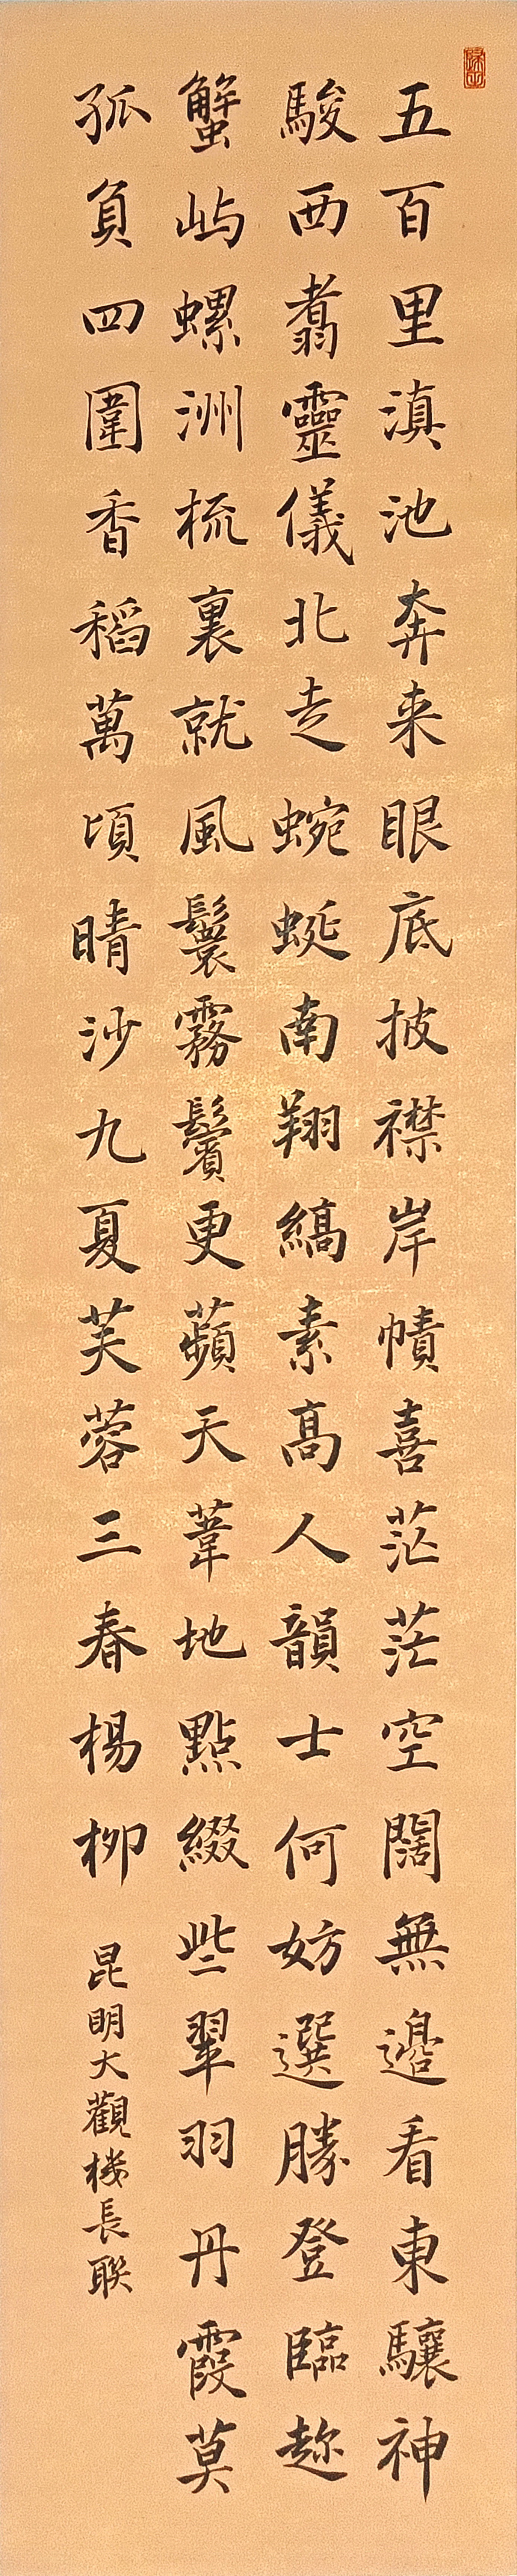 五百里滇池奔来眼底披襟岸幘喜茫茫空闊無邊看東驤神
駿西翥靈儀北走蜿蜒南翔縞素高人韻士何妨選勝登臨趂
蟹屿螺洲梳裹就風鬟霧鬢更蘋天葦地點綴些翠羽丹霞莫
孤負四圍香稻萬頃晴沙九夏芙蓉三春楊柳
昆明大觀樓長聯